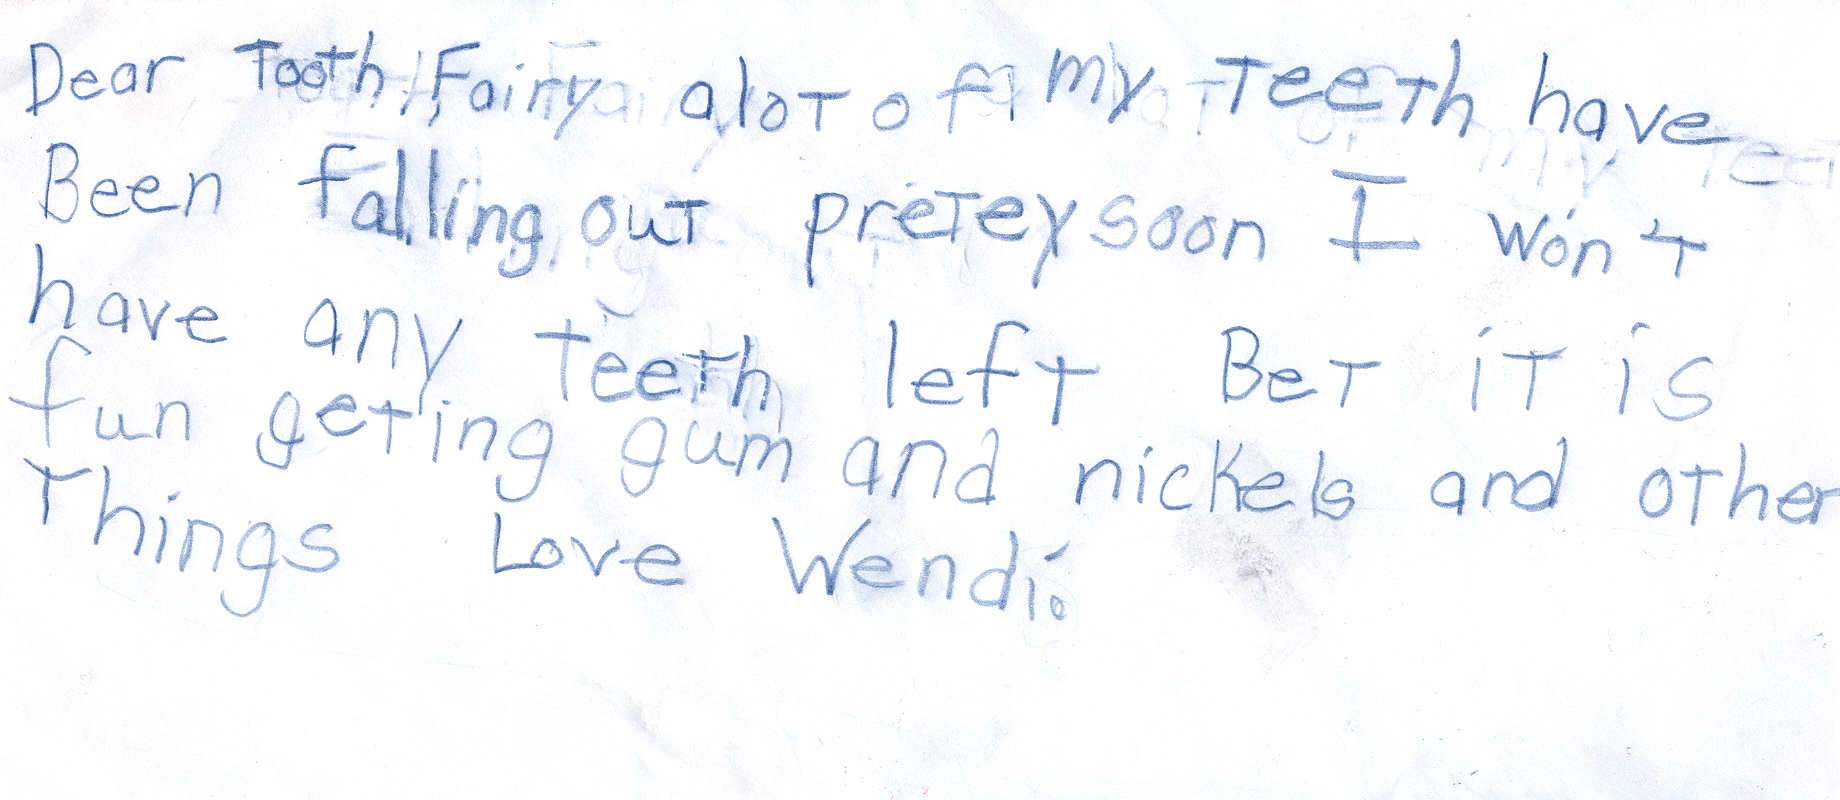 Dear Tooth Fairy alot of my Teeth have
Been falling out pretey soon I won't
have any Teeth left Bet it is
fun geting gum and nickels and other
Things Love Wendi.